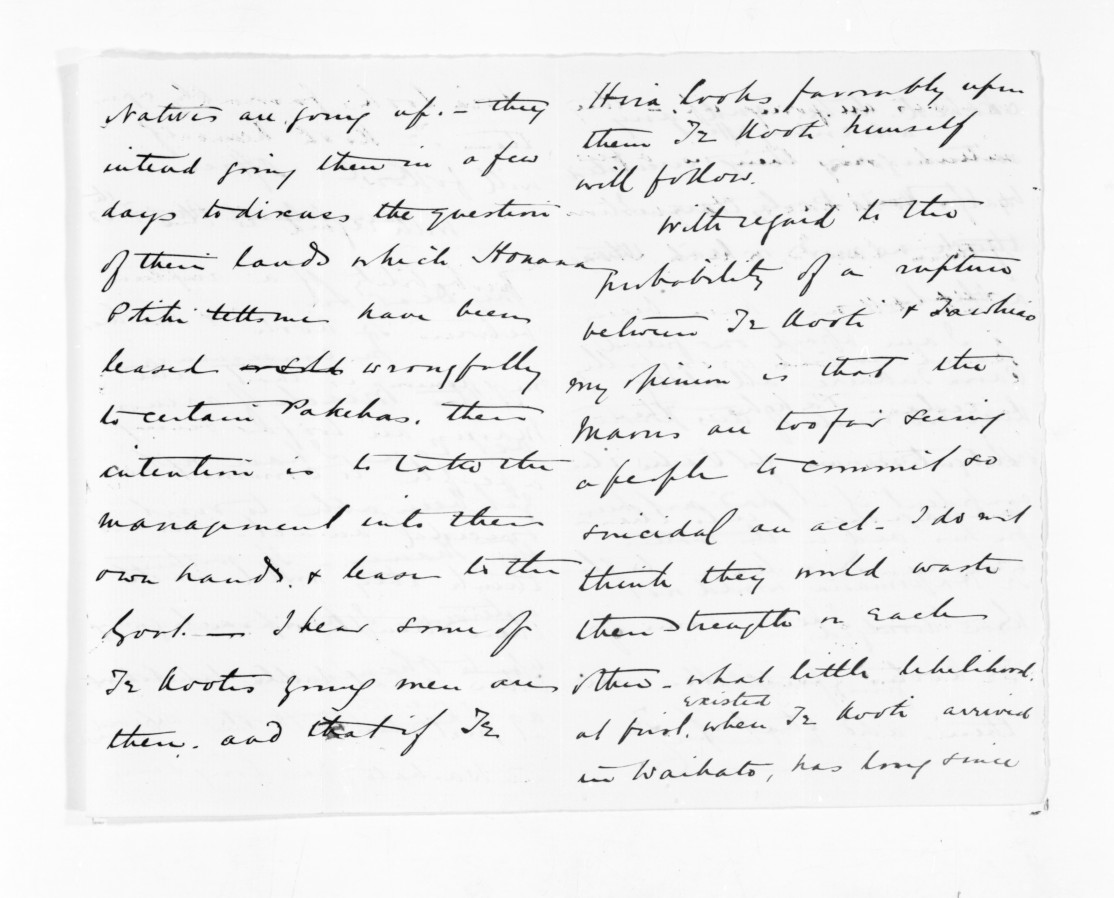 Natives are going up. - they
intend going there in a few
days to discuss the question
of their lands which Honana
Ptihi tells me have been
leased or sold wrongfully
to certain Pakehas. their
intention is to take the
management into their
own hands. & lease to the
Govt. — I hear some of
Te Kootis young men are
there. and that if Te
Hira looks favorably upon
them Te Kooti himself
will follow.
With regard to the
probability of a rupture
between Te Kooti & Tawhiao
my opinion is that the
Maoris are too far seeing
a people to commit so
suicidal an act - I do not
think they would waste
their strength on each
other - what little likelihood
existed
at first, when Te Kooti arrived
in Waikato, has long since